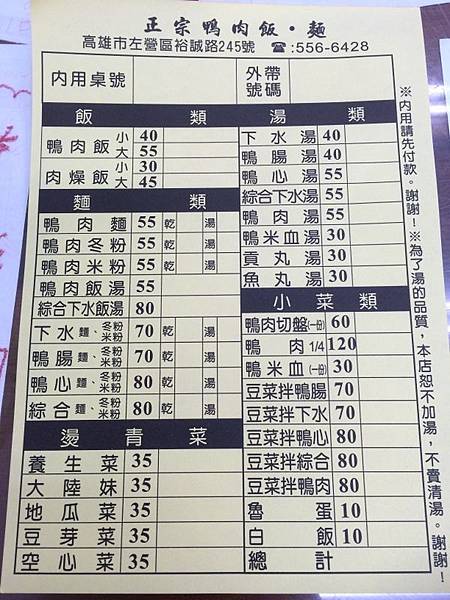 正宗鴨肉飯·麵
高雄市左營區裕誠路245號 ☎:556-6428
內用桌號
外帶號碼
飯 類
鴨肉飯 小 40
大 55
肉燥飯 小 30
大 45
麵 類
鴨肉麵 55 乾 湯
鴨肉冬粉 55 乾 湯
鴨肉米粉 55 乾 湯
鴨肉飯湯 55
綜合下水飯湯 80
下水 麵、冬粉 米粉 70 乾 湯
鴨腸 麵、冬粉 米粉 70 乾 湯
鴨心 麵、冬粉 米粉 80 乾 湯
綜合 麵、冬粉 米粉 80 乾 湯
燙青菜
養生菜 35
大陸妹 35
地瓜菜 35
豆芽菜 35
空心菜 35
湯 類
下水湯 40
鴨腸湯 40
鴨心湯 55
綜合下水湯 55
鴨肉湯 55
鴨米血湯 30
貢丸湯 30
魚丸湯 30
小菜類
鴨肉切盤(一份) 60
鴨肉1/4 120
鴨米血(一份) 30
豆菜拌鴨腸 70
豆菜拌下水 70
豆菜拌鴨心 80
豆菜拌綜合 80
豆菜拌鴨肉 80
魯蛋 10
白飯 10
總計
※內用請先付款。謝謝!※為了湯的品質,本店恕不加湯,不賣清湯。謝謝!